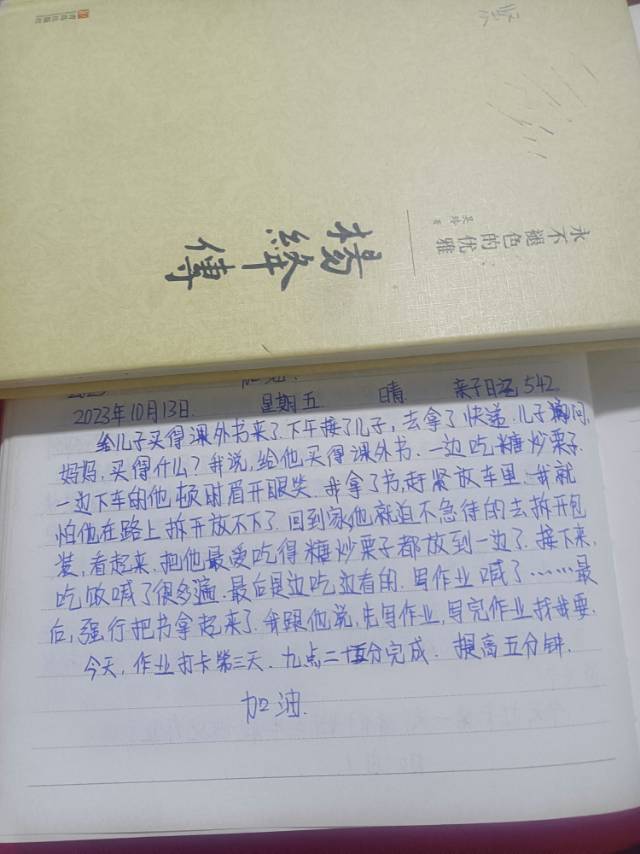 坚
永不褪色的优雅
吴玲 著
杨绛傳
2023年10月13日. 星期五 晴. 亲子日记542
给儿子买得课外书来了.下午接了儿子,去拿了快递.儿子问,
妈妈,买得什么?我说,给他买得课外书.一边吃糖炒栗子.
一边下车的他顿时眉开眼笑.我拿了书,赶紧放车里.我就
怕他在路上拆开放不下了.回到家他就迫不急待的去拆开包
装,看起来.把他最爱吃得糖炒栗子都放到一边了.接下来,
吃饭喊了很多遍.最后是边吃边看的.写作业喊了……最
后,强行把书拿起来了.我跟他说,先写作业,写完作业找我要.
今天,作业打卡第三天.九点二十五分完成.提高五分钟.
加油.